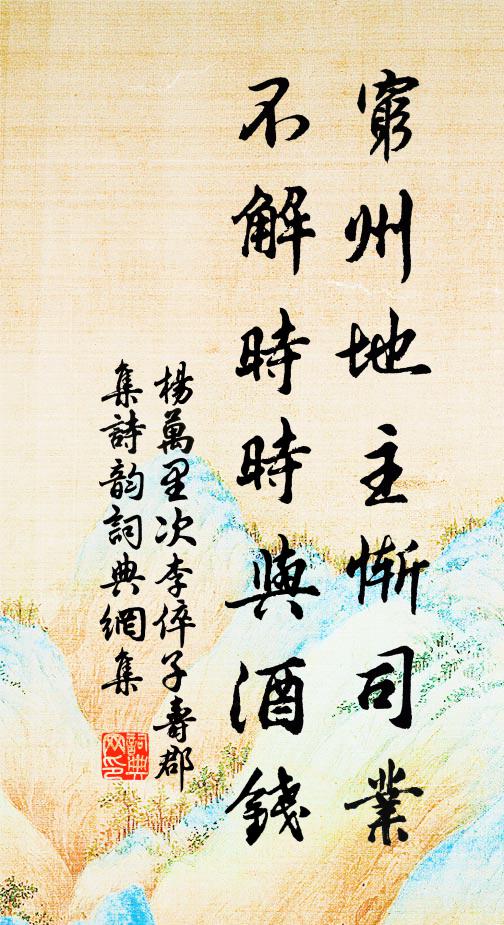 窮州地主慚司業
不解時時與酒錢
楊萬里次李倅子壽郡
集詩韵詞典網集
詞典
网印